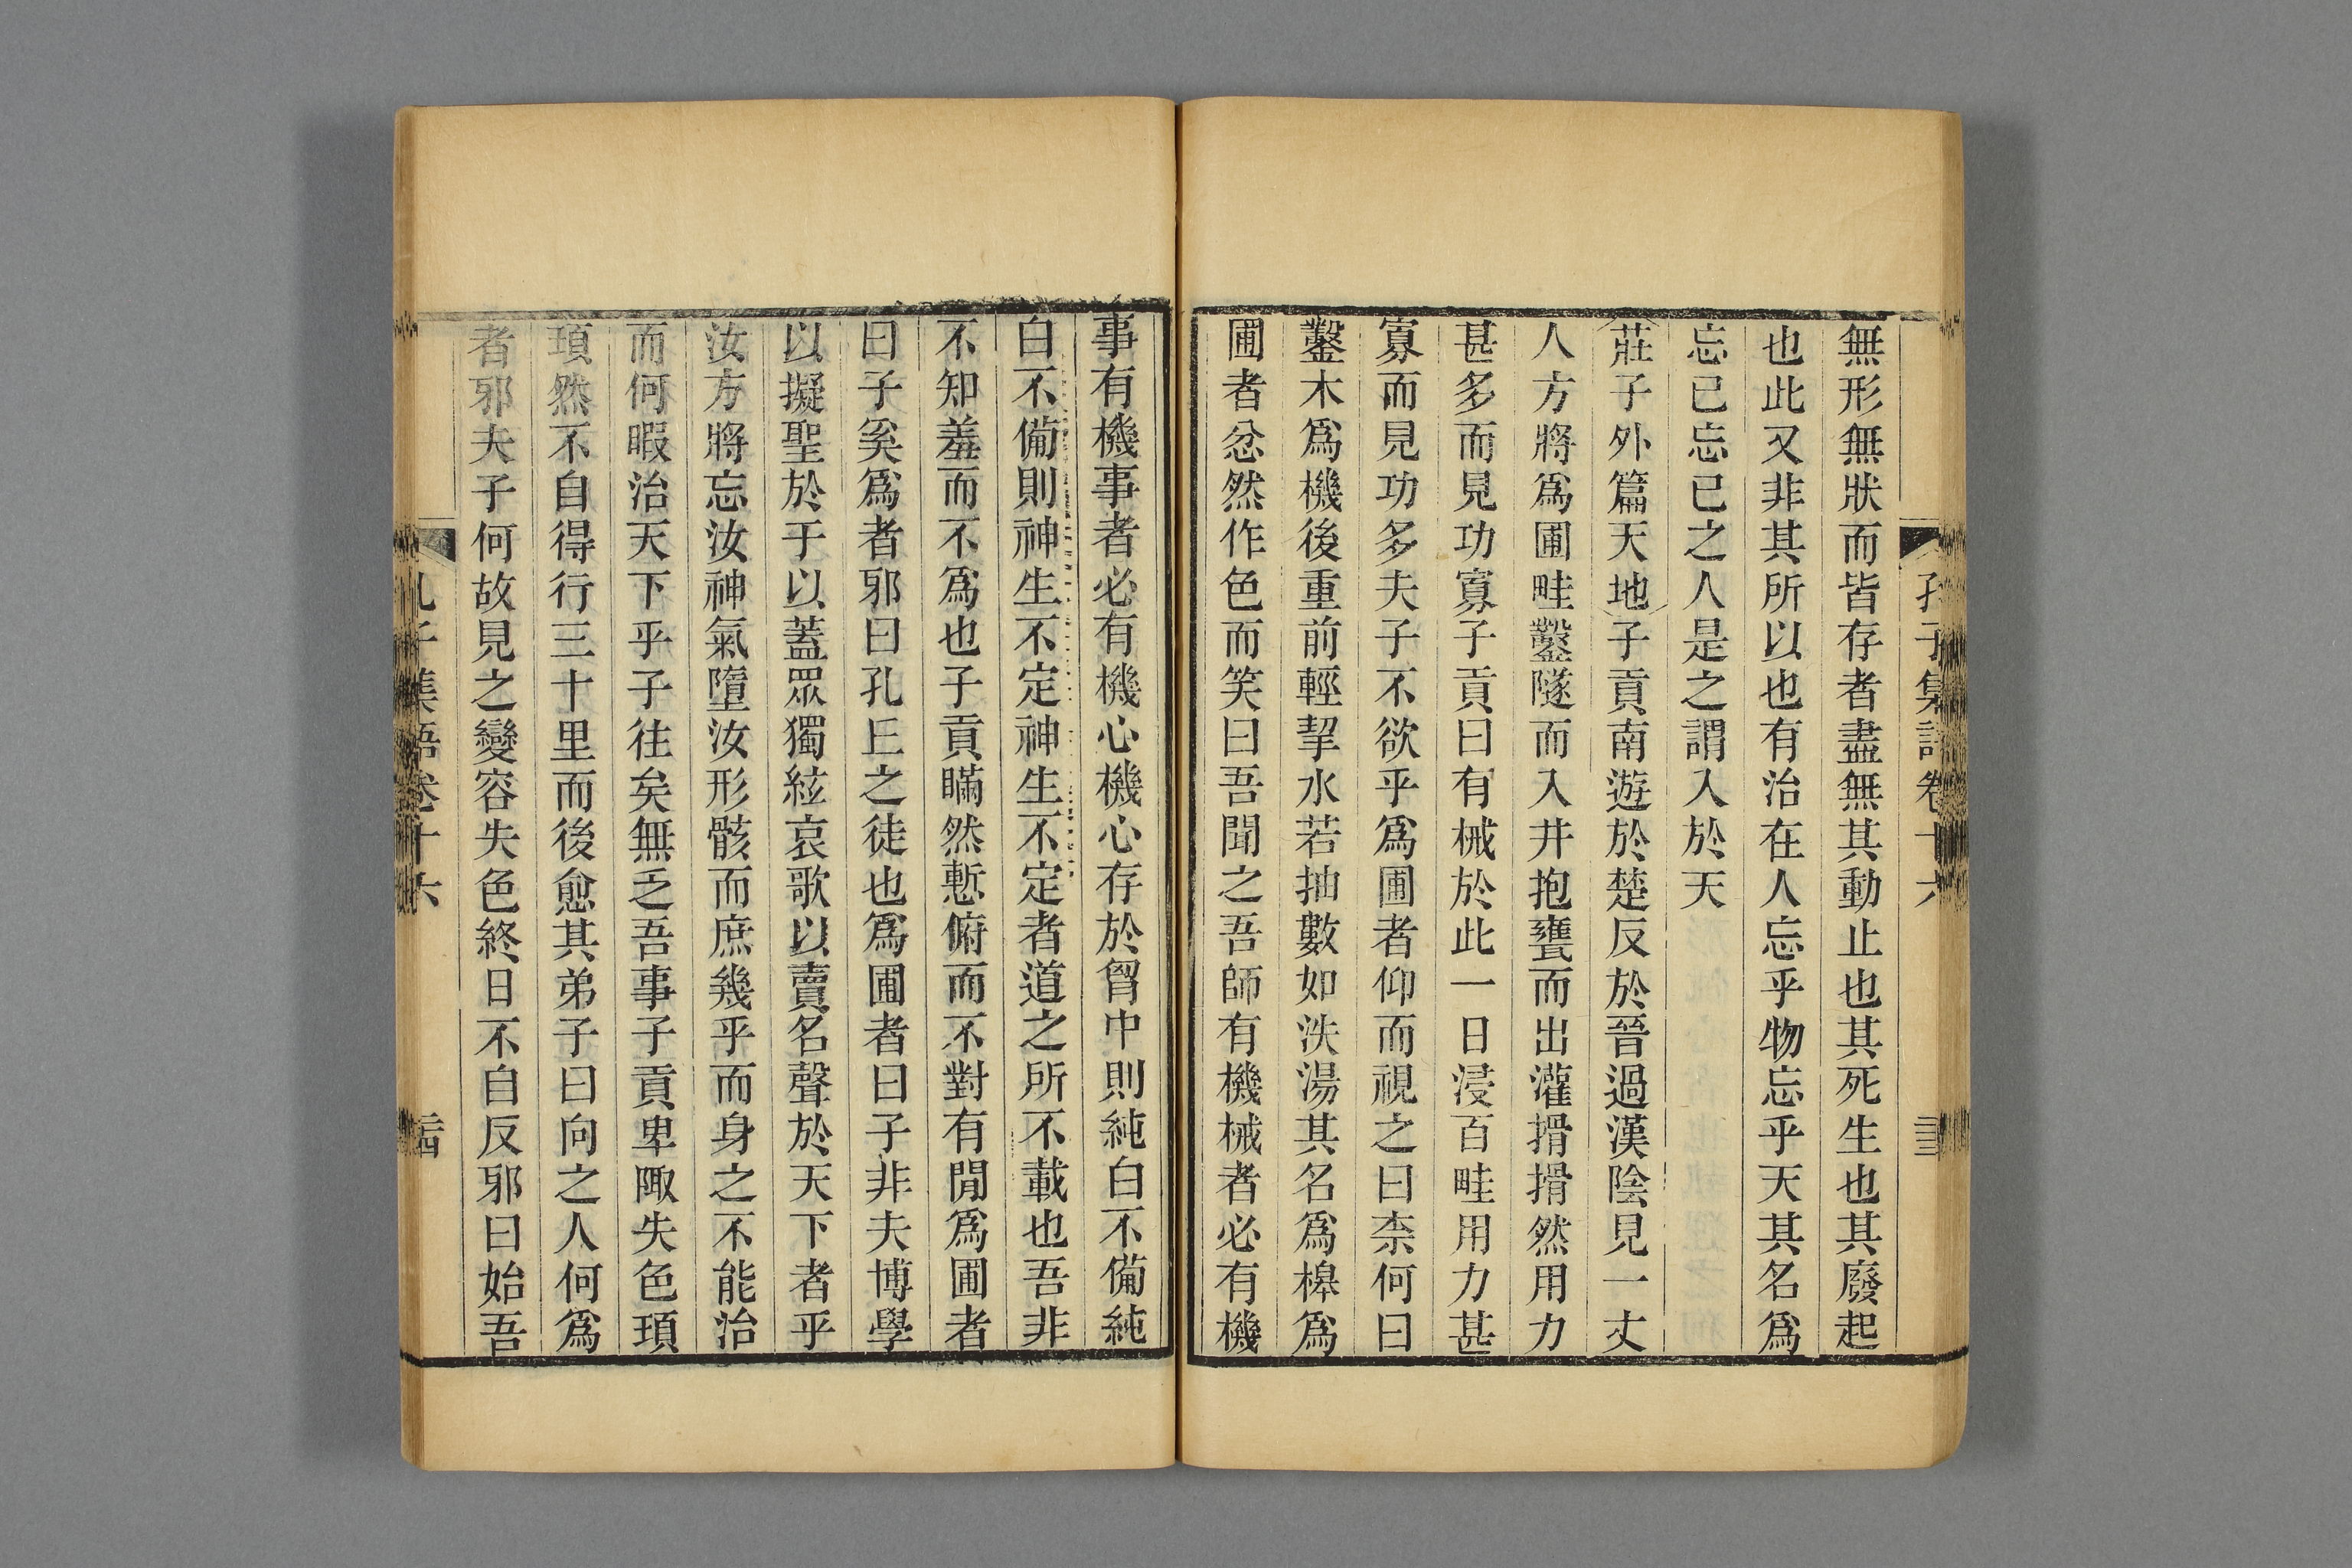 孔子集語卷十六
無形無狀而皆存者盡無其動止也其死生也其廢起
也此又非其所以也有治在人忘乎物忘乎天其名爲
忘已忘已之人是之謂入於天
莊子外篇天地子貢南遊於楚反於晉過漢陰見一丈
人方將爲圃畦鑿隧而入井抱甕而出灌搰搰然用力
甚多而見功寡子貢曰有械於此一日浸百畦用力甚
寡而見功多夫子不欲乎爲圃者仰而視之曰柰何曰
鑿木爲機後重前輕挈水若抽數如泆湯其名爲槔爲
圃者忿然作色而笑曰吾聞之吾師有機械者必有機
事有機事者必有機心機心存於胷中則純白不備純
白不備則神生不定神生不定者道之所不載也吾非
不知羞而不爲也子貢瞞然慙俯而不對有閒爲圃者
曰子奚爲者邪曰孔丘之徒也爲圃者曰子非夫博學
以擬聖於于以蓋眾獨絃哀歌以賣名聲於天下者乎
汝方將忘汝神氣墮汝形骸而庶幾乎而身之不能治
而何暇治天下乎子往矣無乏吾事子貢卑陬失色頊
頊然不自得行三十里而後愈其弟子曰向之人何爲
者邪夫子何故見之變容失色終日不自反邪曰始吾
孔子集語卷十六